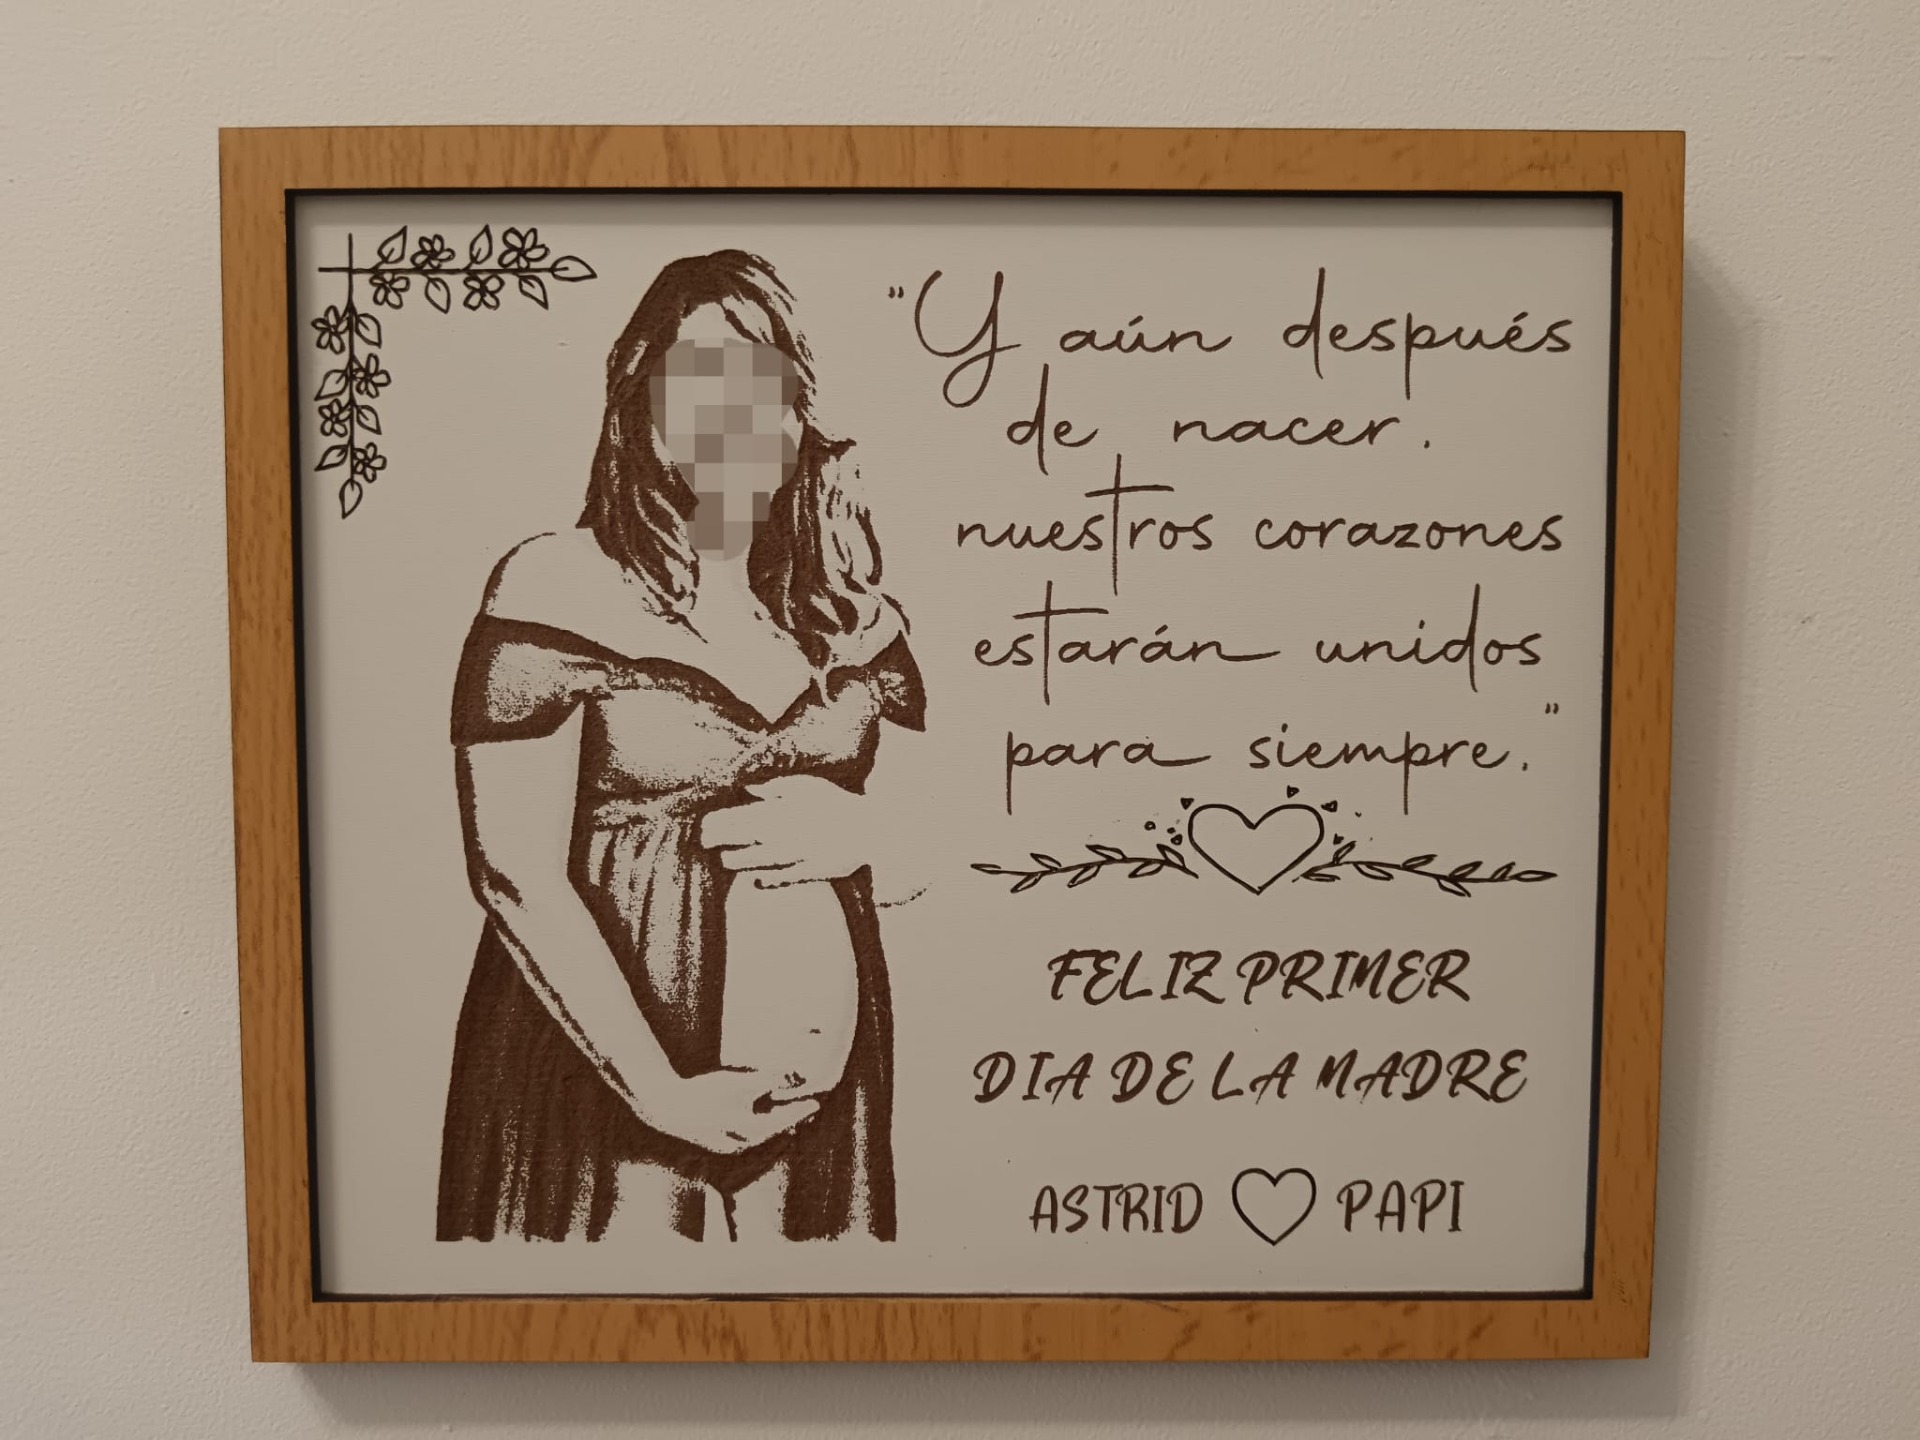 "Y aún después
de nacer.
nuestros corazones
estarán unidos
para siempre."
FELIZ PRIMER
DIA DE LA MADRE
ASTRID ♡ PAPI